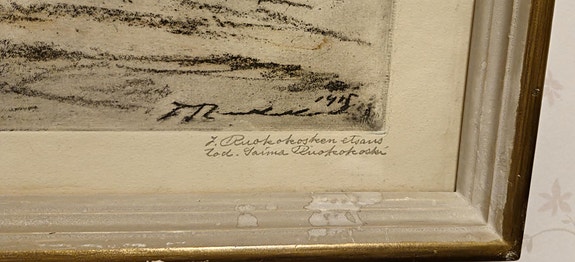 J. Ruokokosken etsaus
Tod. Saima Ruokokoski